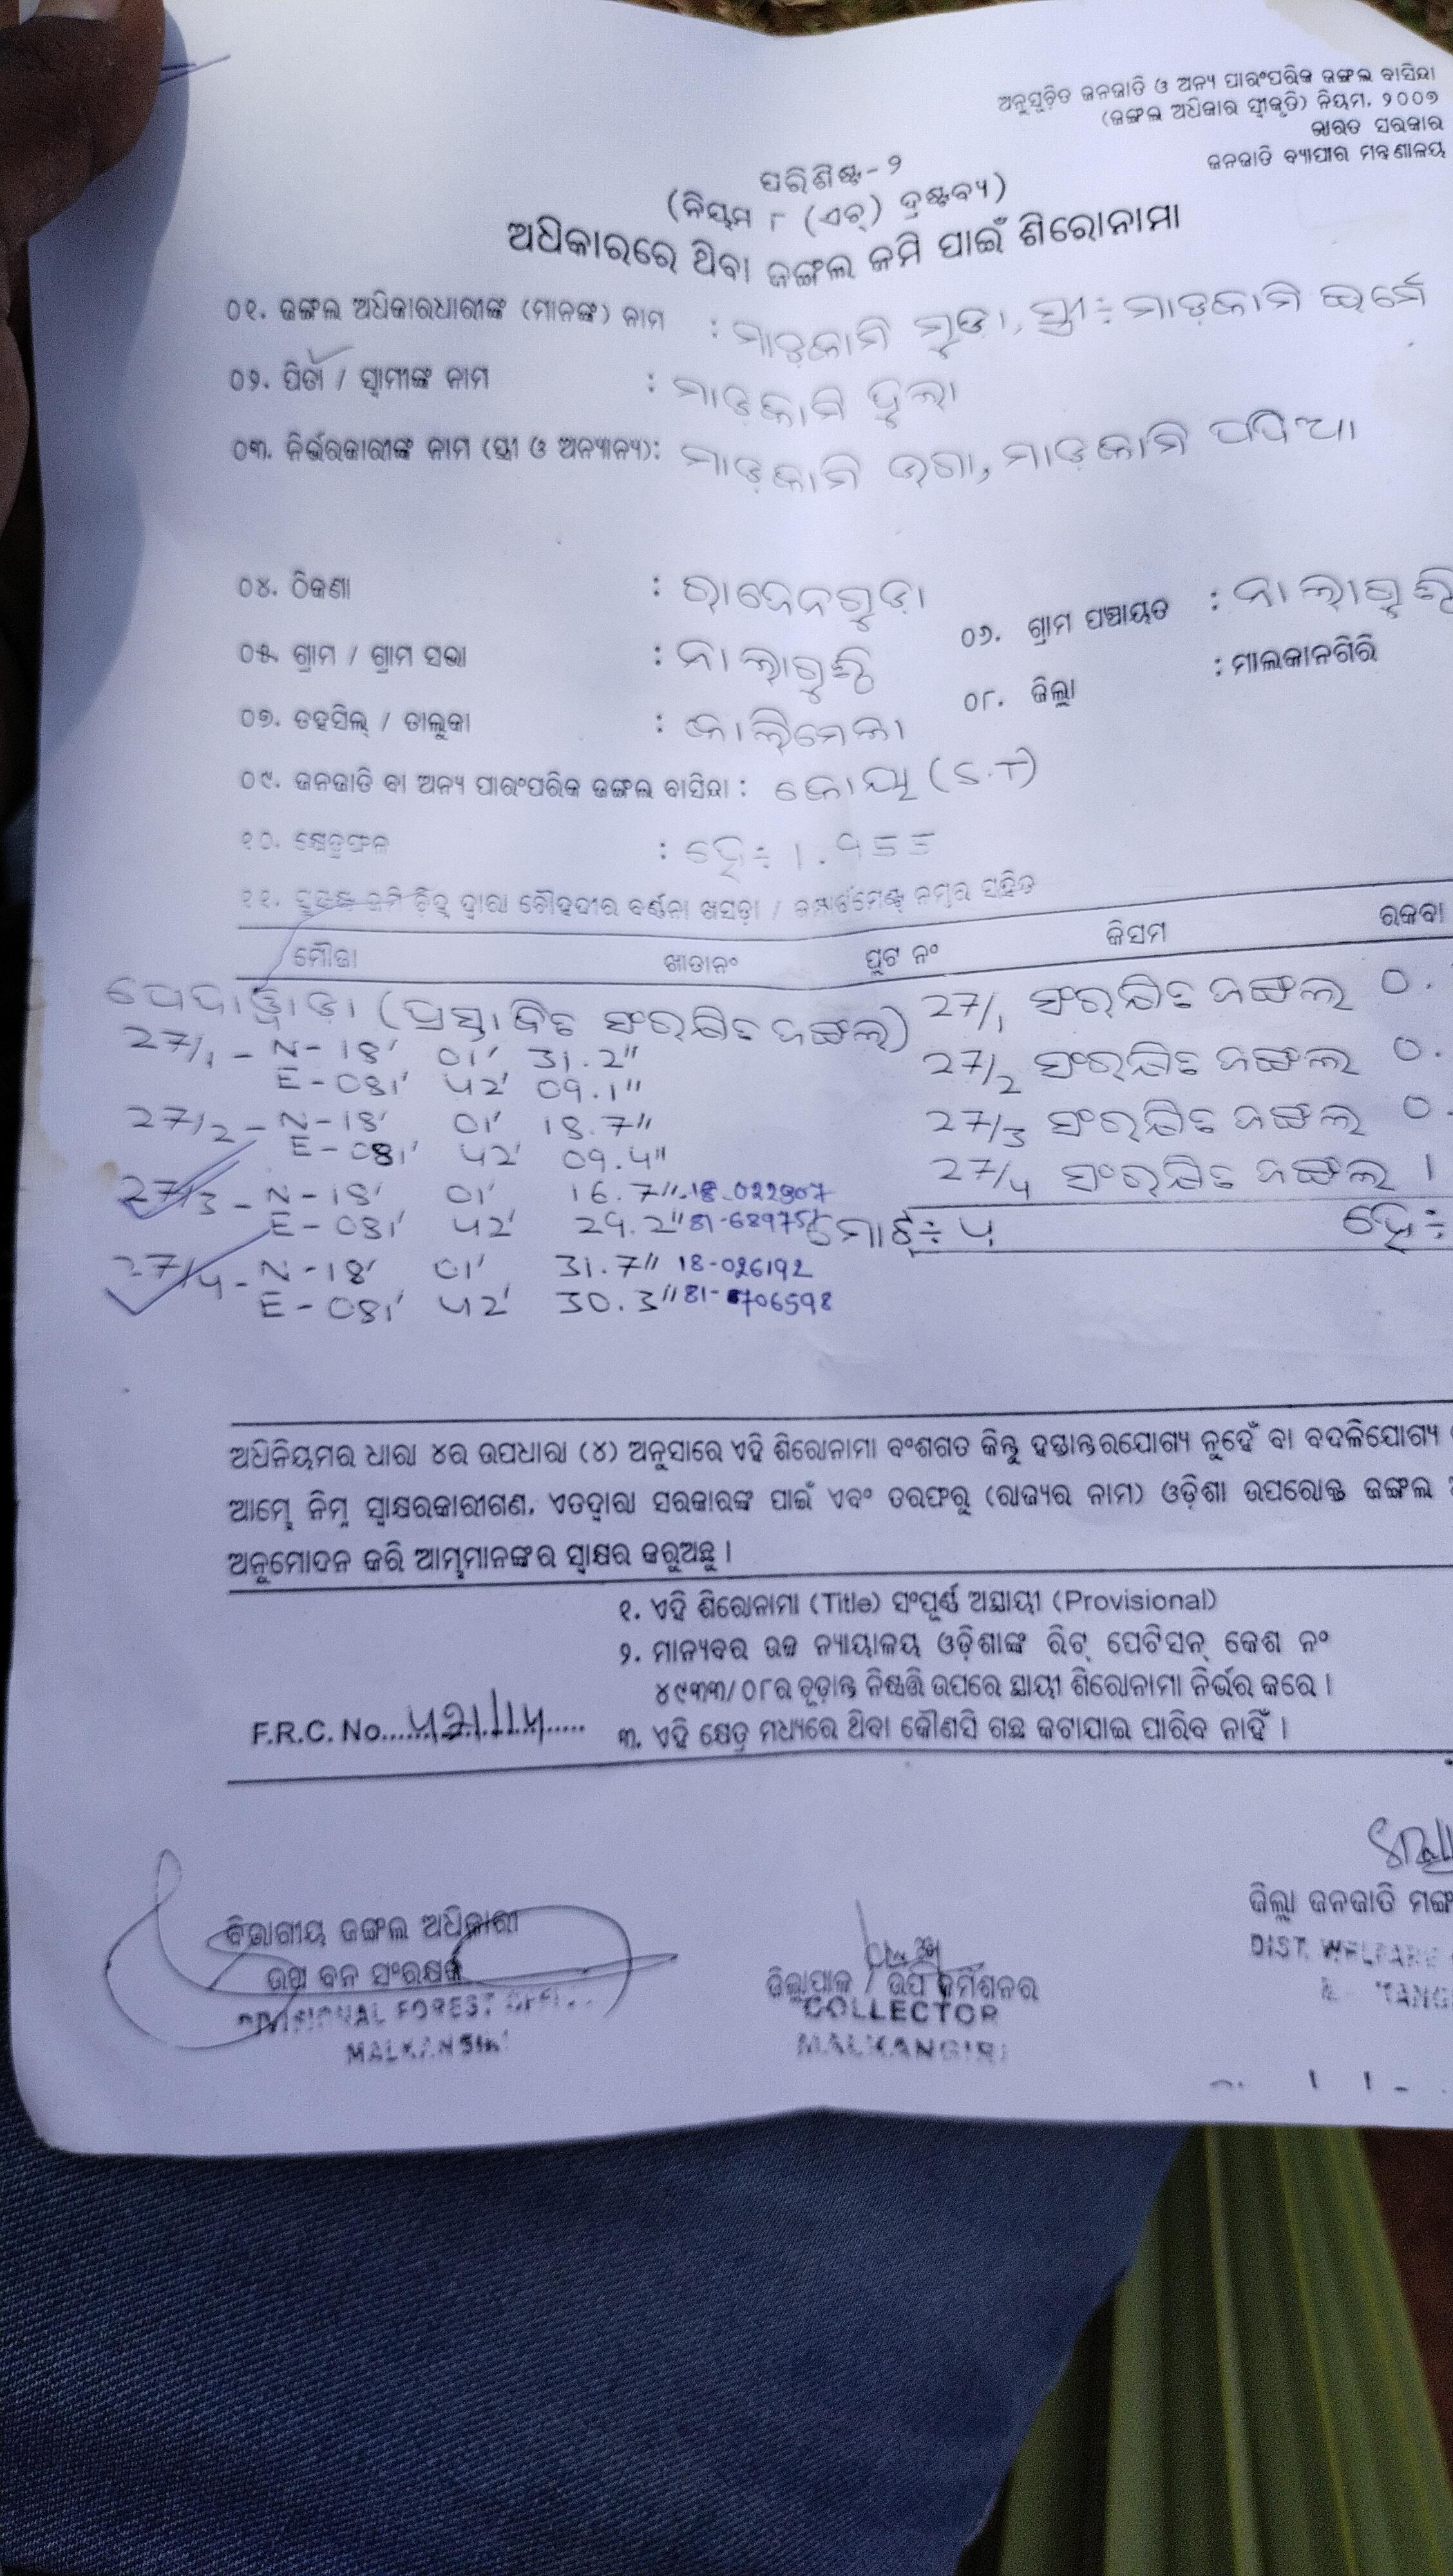 ଅନୁସୂଚିତ ଜନଜାତି ଓ ଅନ୍ୟ ପାରଂପରିକ ଜଙ୍ଗଲ ବାସିନ୍ଦା
(ଜଙ୍ଗଲ ଅଧିକାର ସ୍ୱୀକୃତି) ନିୟମ, ୨୦୦୭
ଭାରତ ସରକାର
ଜନଜାତି ବ୍ୟାପାର ମନ୍ତ୍ରଣାଳୟ
ପରିଶିଷ୍ଟ-୨
(ନିୟମ ୮ (ଏଚ୍) ଦ୍ରଷ୍ଟବ୍ୟ)
ଅଧିକାରରେ ଥିବା ଜଙ୍ଗଲ ଜମି ପାଇଁ ଶିରୋନାମା
୦୧. ଜଙ୍ଗଲ ଅଧିକାରଧାରୀଙ୍କ (ମାନଙ୍କ) ନାମ : ମାଡ଼କାମି ମୁଡା, ସ୍ତ୍ରୀ÷ ମାଡ଼କାମି ଇର୍ମେ
୦୨. ପିତା / ସ୍ୱାମୀଙ୍କ ନାମ : ମାଡ଼କାମି ଦୁଲା
୦୩. ନିର୍ଭରକାରୀଙ୍କ ନାମ (ସ୍ତ୍ରୀ ଓ ଅନ୍ୟାନ୍ୟ): ମାଡ଼କାମି ଉଗା, ମାଡ଼କାମି
୦୪. ଠିକଣା :
୦୫. ଗ୍ରାମ / ଗ୍ରାମ ସଭା : ନାଲାଗୁଣ୍ଠି ୦୬. ଗ୍ରାମ ପଞ୍ଚାୟତ : ନାଲାଗୁଣ୍ଠି
୦୭. ତହସିଲ୍ / ତାଲୁକା : କାଲିମେଳା ୦୮. ଜିଲ୍ଲା : ମାଲକାନଗିରି
୦୯. ଜନଜାତି ବା ଅନ୍ୟ ପାରଂପରିକ ଜଙ୍ଗଲ ବାସିନ୍ଦା : କୋୟା (S.T)
୧୦. କ୍ଷେତ୍ରଫଳ : ହେ÷ 1.955
୧୧. ଜମି ଚିହ୍ନ ଦ୍ୱାରା ଚୌହଦୀର ବର୍ଣ୍ଣନା ଖସଡ଼ା / କମ୍ପାର୍ଟମେଣ୍ଟ୍ ନମ୍ବର ସହିତ
ମୌଜା ଖାତାନଂ ପ୍ଲଟ ନଂ କିସମ ରକବା
ପେଦାୱାଡା (ପ୍ରସ୍ତାବିତ ସଂରକ୍ଷିତ ଜଙ୍ଗଲ) 27/1 ସଂରକ୍ଷିତ ଜଙ୍ଗଲ 0.
27/1 - N-18' 01' 31.2"
E-081' 42' 09.1" 27/2 ସଂରକ୍ଷିତ ଜଙ୍ଗଲ 0.
27/2 - N-18' 01' 18.7" 27/3 ସଂରକ୍ଷିତ ଜଙ୍ଗଲ 0.
E-081' 42' 09.4"
27/3 - N-18' 01' 16.7" 18-022907 27/4 ସଂରକ୍ଷିତ ଜଙ୍ଗଲ 1
E-081' 42' 29.2" 81-68975 ମୋଟ÷ ୪ ହେ÷
27/4 - N-18' 01' 31.7" 18-026192
E-081' 42' 30.3" 81-706598
ଅଧିନିୟମର ଧାରା ୪ର ଉପଧାରା (୪) ଅନୁସାରେ ଏହି ଶିରୋନାମା ବଂଶଗତ କିନ୍ତୁ ହସ୍ତାନ୍ତରଯୋଗ୍ୟ ନୁହେଁ ବା ବଦଳିଯୋଗ୍ୟ
ଆମ୍ଭେ ନିମ୍ନ ସ୍ୱାକ୍ଷରକାରୀଗଣ, ଏତଦ୍ୱାରା ସରକାରଙ୍କ ପାଇଁ ଏବଂ ତରଫରୁ (ରାଜ୍ୟର ନାମ) ଓଡ଼ିଶା ଉପରୋକ୍ତ ଜଙ୍ଗଲ
ଅନୁମୋଦନ କରି ଆମ୍ଭମାନଙ୍କର ସ୍ୱାକ୍ଷର କରୁଅଛୁ ।
୧. ଏହି ଶିରୋନାମା (Title) ସଂପୂର୍ଣ୍ଣ ଅସ୍ଥାୟୀ (Provisional)
୨. ମାନ୍ୟବର ଉଚ୍ଚ ନ୍ୟାୟାଳୟ ଓଡ଼ିଶାଙ୍କ ରିଟ୍ ପେଟିସନ୍ କେଶ ନଂ
୪୯୩୩/୦୮ର ଚୂଡ଼ାନ୍ତ ନିଷ୍ପତ୍ତି ଉପରେ ସ୍ଥାୟୀ ଶିରୋନାମା ନିର୍ଭର କରେ ।
F.R.C. No.
୩. ଏହି କ୍ଷେତ୍ର ମଧ୍ୟରେ ଥିବା କୌଣସି ଗଛ କଟାଯାଇ ପାରିବ ନାହିଁ ।
ବିଭାଗୀୟ ଜଙ୍ଗଲ ଅଧିକାରୀ
ଉପ ବନ ସଂରକ୍ଷକ
DIVISIONAL FOREST
MALKANGIRI
ଜିଲ୍ଲାପାଳ / ଉପ କମିଶନର
COLLECTOR
MALKANGIRI
ଜିଲ୍ଲା ଜନଜାତି
DIST. WELFARE